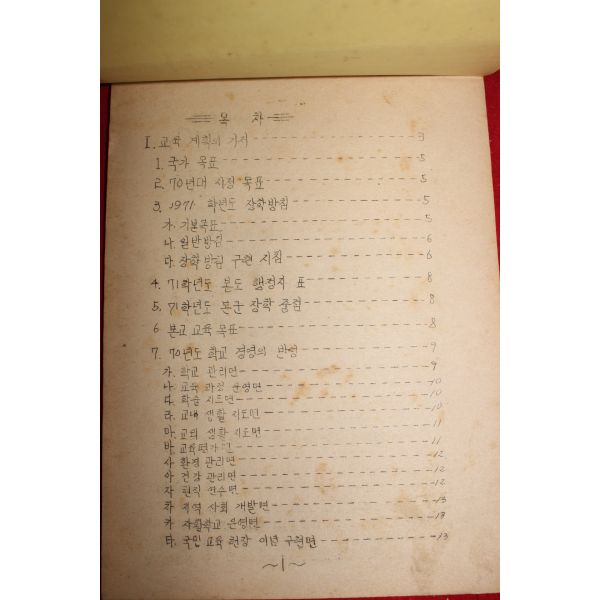 목 차
I. 교육 계획의 기저 3
1. 국가 목표 5
2. 70년대 시정 목표 5
3. 1971 학년도 장학방침 5
가. 기본목표 5
나. 일반방침 6
다. 장학방침 구현 시침 6
4. 71학년도 본도 행정지 표 8
5. 71학년도 본군 장학 중점 8
6 본교 교육 목표 8
7. 70년도 학교 경영의 반성 9
가. 학교 관리면 9
나. 교육 과정 운영면 10
다. 학습 지도면 10
라. 교내 생활 지도면 10
마. 교외 생활 지도면 11
바. 교육평가면 11
사 환경 관리면 12
아 건강 관리면 12
자 현직 연수면 12
차 지역 사회 개발면 13
카 자활학교 운영면 13
타. 국민 교육 헌장 이념 구현면 13
~1~